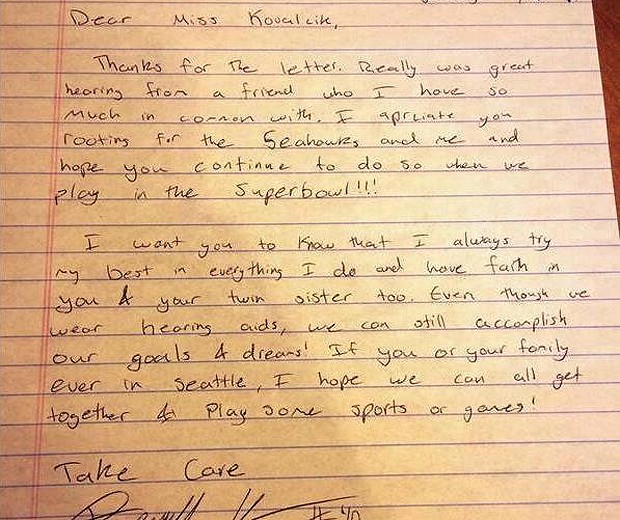 Dear Miss Kovalcik,
Thanks for The letter. Really was great
hearing from a friend who I have so
much in common with. I aprciate you
rooting for the Seahawks and me and
hope you continue to do so when we
play in the Superbowl!!!
I want you to know that I always try
my best in everything I do and have faith in
you & your twin sister too. Even though we
wear hearing aids, we can still accomplish
our goals & dreams! If you or your family
ever in Seattle, I hope we can all get
together & Play some sports or games!
Take Care
#40